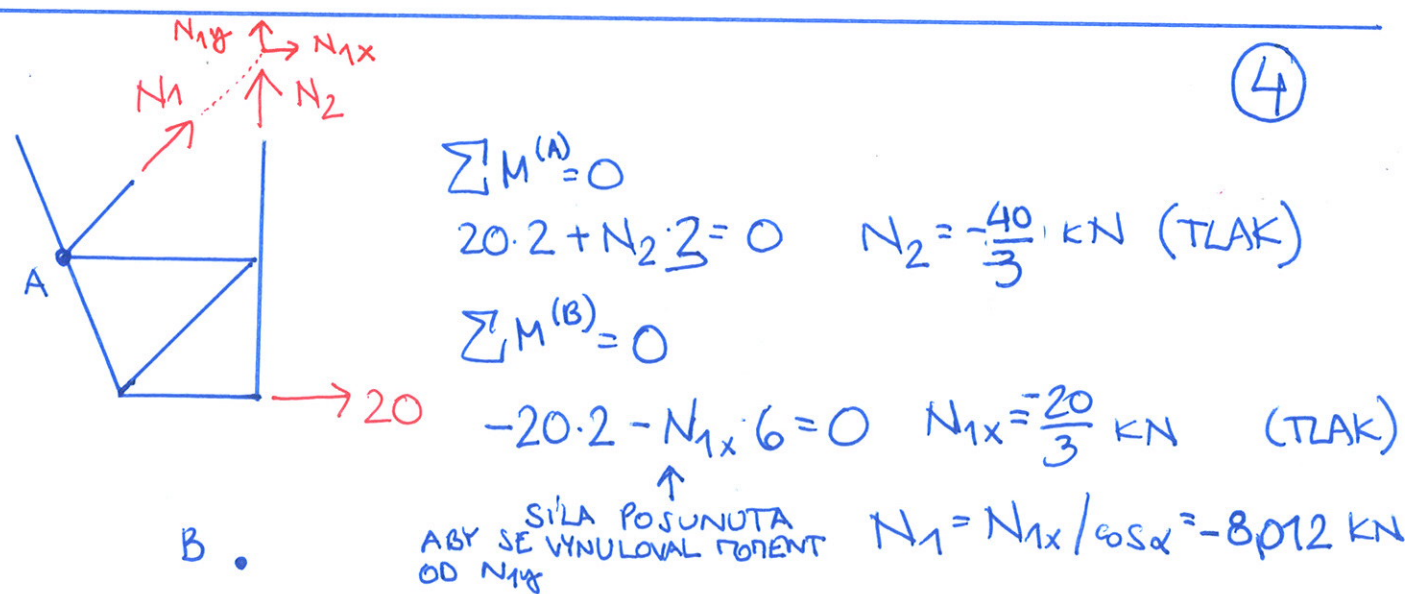 ④
N1y N1x
N1 N2
ΣM(A)=0
20·2 + N2·3 = 0 N2 = -40/3 kN (TLAK)
A
ΣM(B)=0
20
-20·2 - N1x·6 = 0 N1x = -20/3 kN (TLAK)
↑
SÍLA POSUNUTA
ABY SE VYNULOVAL MOMENT
OD N1y
N1 = N1x/cosα = -8,012 kN
B